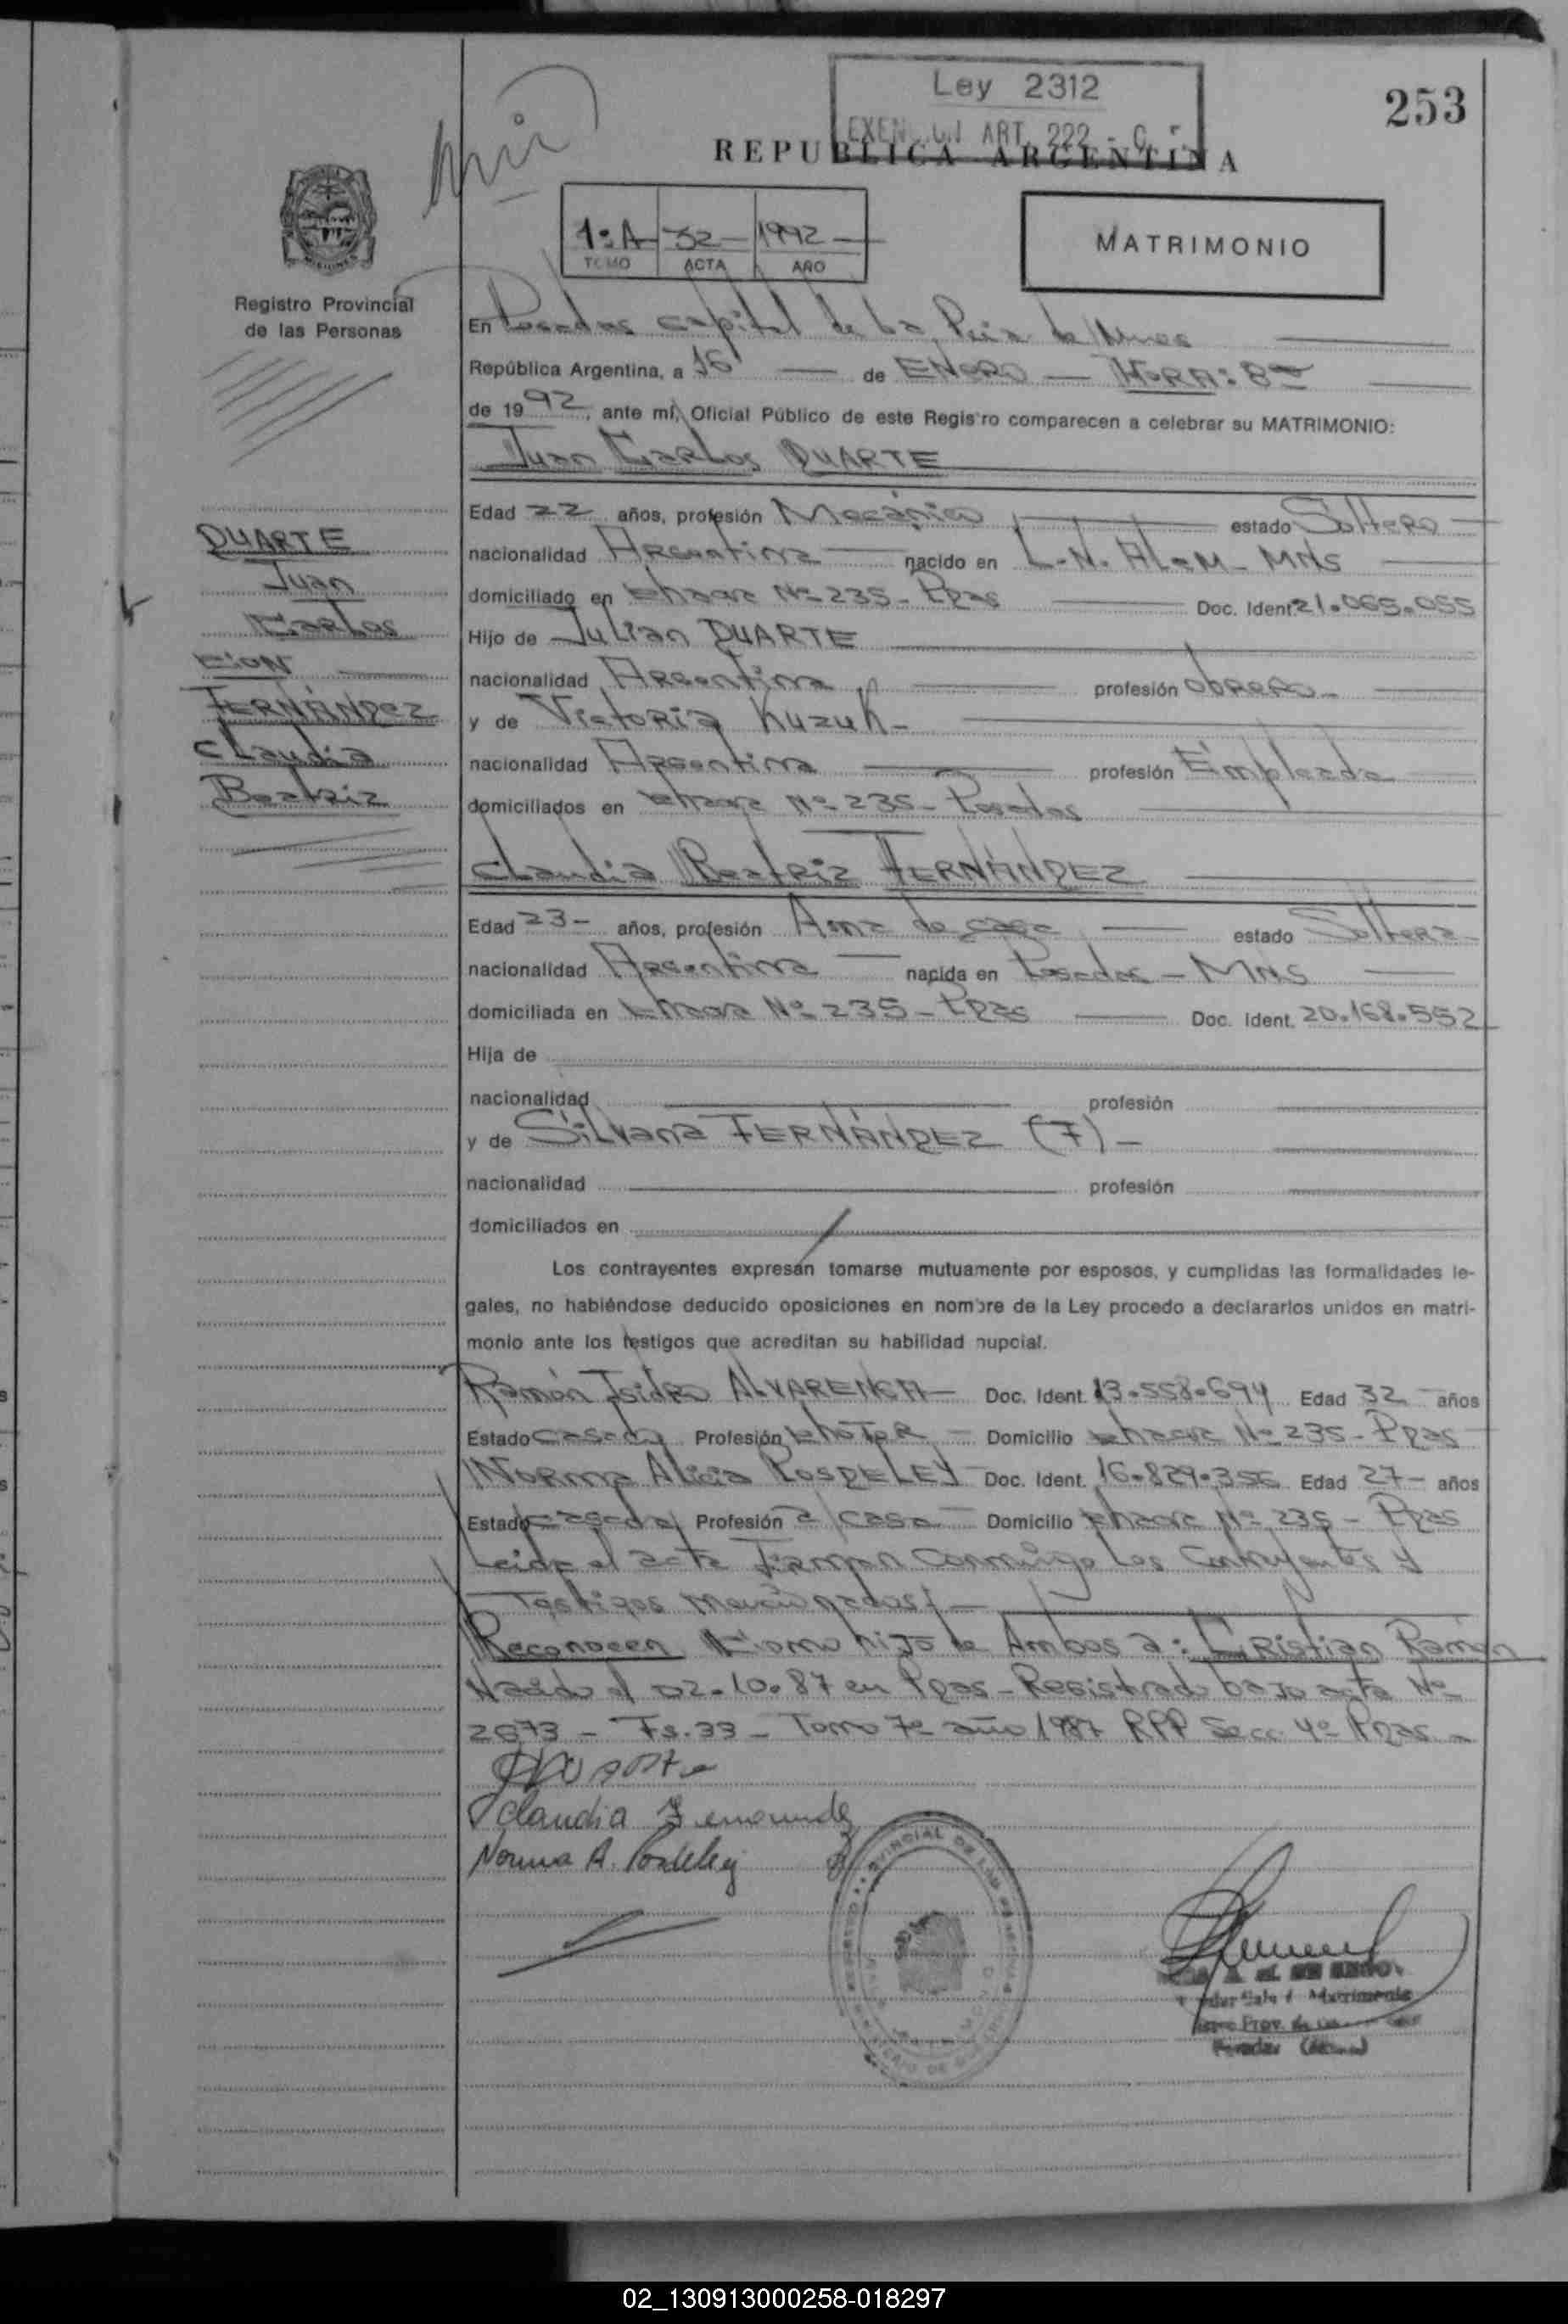 Ley 2312
ART. 222
253
REPUBLICA ARGENTINA
1º A 32 1992
TOMO ACTA AÑO
MATRIMONIO
Registro Provincial
de las Personas
En Posadas capital de la Pcia de Mnes
República Argentina, a 16 de ENERO HORA: 8
de 1992, ante mí, Oficial Público de este Registro comparecen a celebrar su MATRIMONIO:
Juan Carlos DUARTE
Edad 22 años, profesión Mecánico estado Soltero
nacionalidad Argentina nacido en L.N. ALEM - MNS
domiciliado en Chacra Nº 235 - Pdas Doc. Ident. 21.065.055
Hijo de Julian DUARTE
nacionalidad Argentina profesión obrero
y de Victoria Kuzuk -
nacionalidad Argentina profesión Empleada
domiciliados en Chacra Nº 235 - Posadas
Claudia Beatriz FERNÁNDEZ
Edad 23 - años, profesión Ama de casa estado Soltera
nacionalidad Argentina nacida en Posadas - MNS
domiciliada en Chacra Nº 235 - Pdas Doc. Ident. 20.168.552
Hija de
nacionalidad profesión
y de Silvana FERNÁNDEZ (7) -
nacionalidad profesión
domiciliados en
Los contrayentes expresan tomarse mutuamente por esposos, y cumplidas las formalidades le-
gales, no habiéndose deducido oposiciones en nombre de la Ley procedo a declararlos unidos en matri-
monio ante los testigos que acreditan su habilidad nupcial.
Ramón Isidro ALVARENGA Doc. Ident. 13.558.694 Edad 32 años
Estado casado Profesión chofer Domicilio Chacra Nº 235 - Pdas
Norma Alicia POSDELEY Doc. Ident. 16.829.356 Edad 27 - años
Estado casada Profesión a/casa Domicilio Chacra Nº 235 - Pdas
Leida el acta Firman Conmigo los Contrayentes y
Testigos mencionados/-
Reconocen Como hijo de Ambos a: Cristian Ramón
Nacido el 02.10.87 en Pdas - Registrado bajo acta Nº
2673 - Fs. 33 - Tomo 7º año 1987 RPP Secc. 4º Pdas -
Claudia Fernandez
Norma A. Posdeley
DUARTE
Juan
Carlos
CON
FERNÁNDEZ
Claudia
Beatriz
02_130913000258-018297